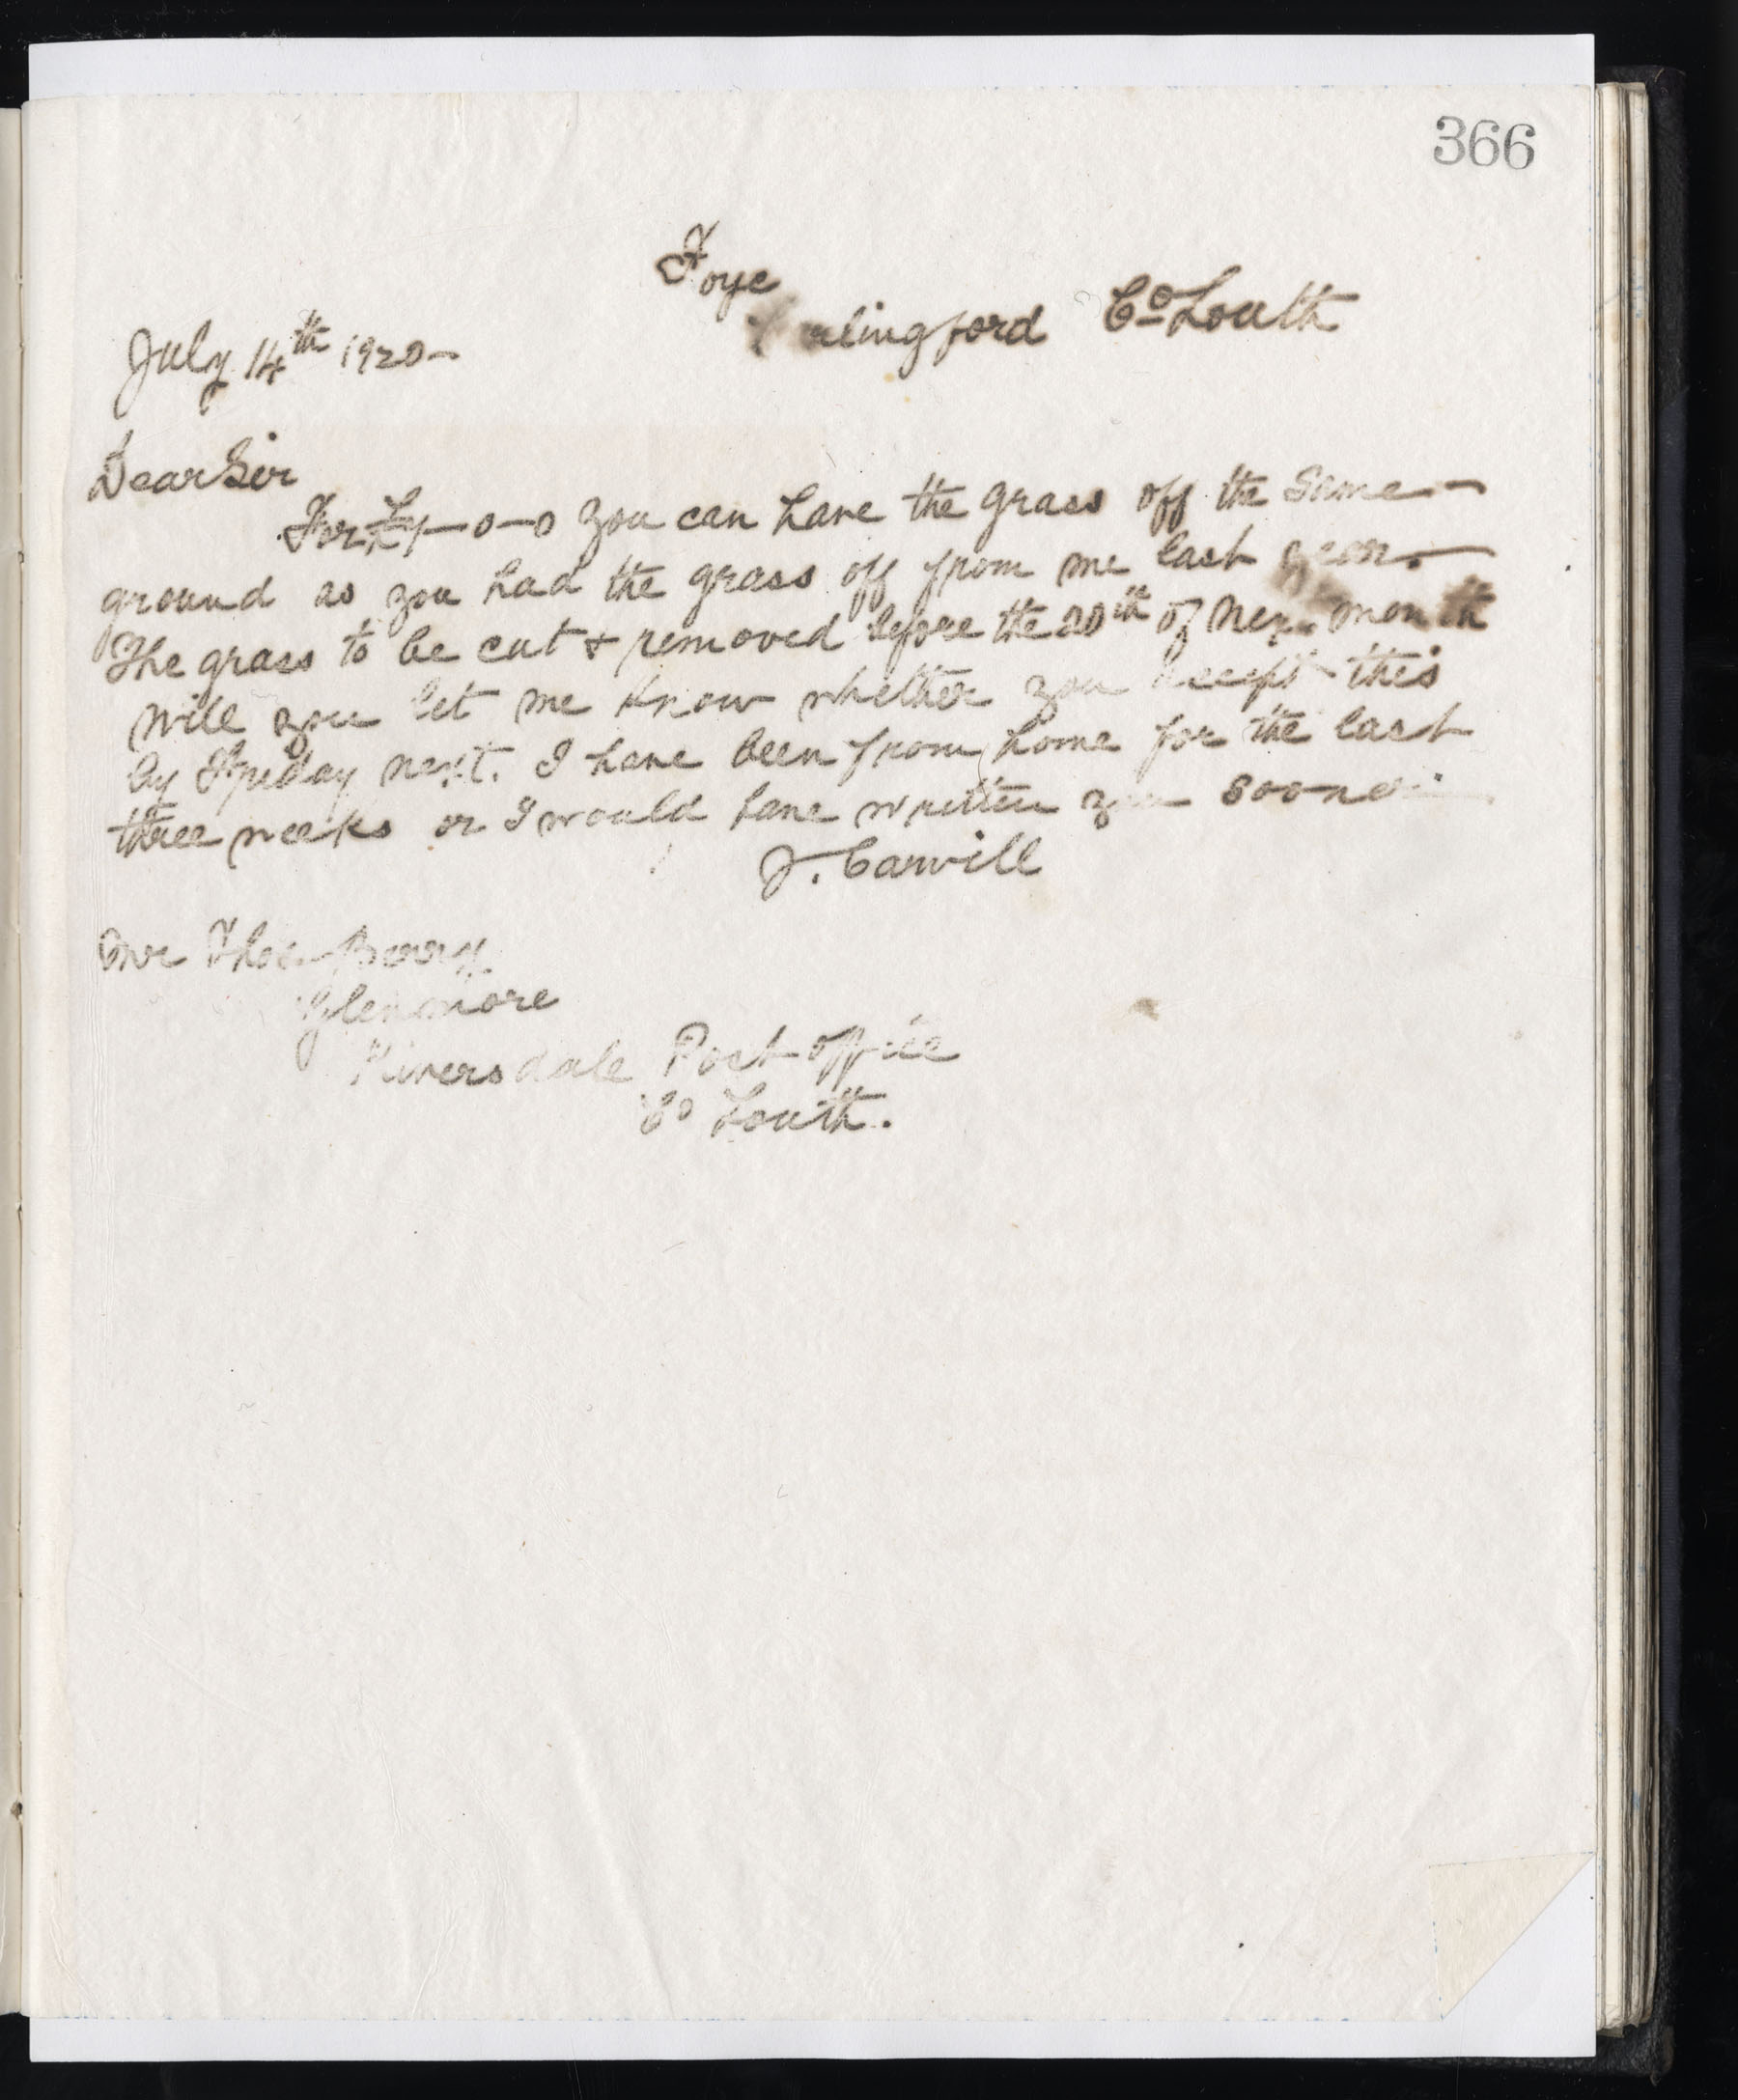 366
Foye
Carlingford Co Louth
July 14th 1920-
Dear Sir
For 0-0 you can have the grass off the same-
ground as you had the grass off from me last year.
The grass to be cut & removed before the 20th of next month
Will you let me know whether you accept this
by Friday next. I have been from home for the last
three weeks or I would have written you sooner
J. Carvill
Thos Berry
Glenmore
Riversdale Post office
Co Louth.